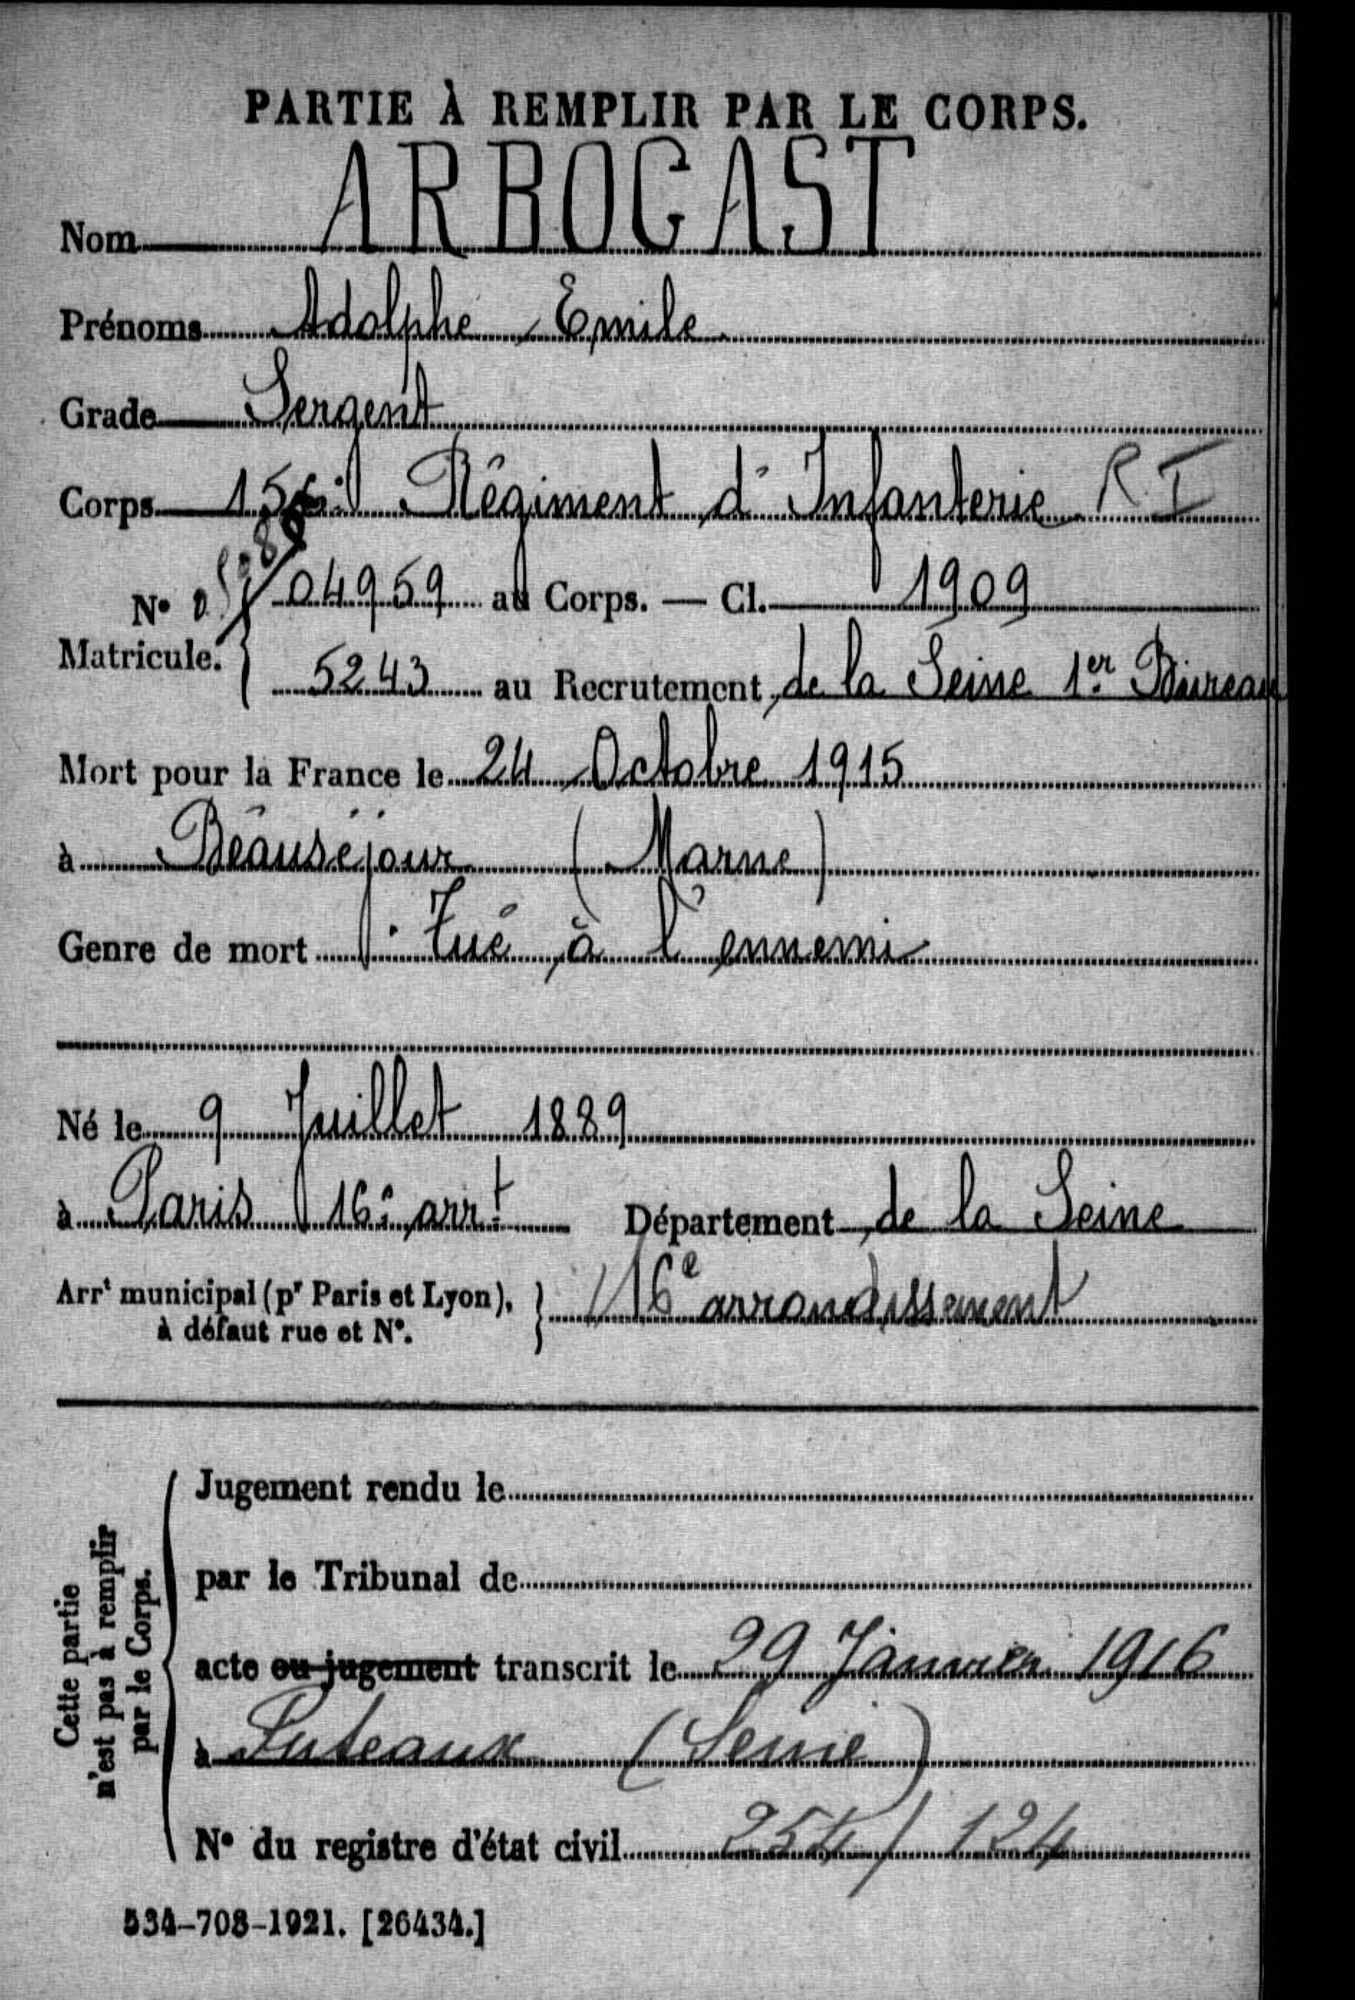 PARTIE À REMPLIR PAR LE CORPS.
Nom ARBOGAST
Prénoms Adolphe Emile
Grade Sergent
Corps 156e Régiment d'Infanterie R.I
No 04959 au Corps. — Cl. 1909
Matricule. 5243 au Recrutement de la Seine 1er Bureau
Mort pour la France le 24 Octobre 1915
à Beauséjour (Marne)
Genre de mort Tué à l'ennemi
Né le 9 Juillet 1889
à Paris 16e arrt Département de la Seine
Arrt municipal (pr Paris et Lyon), à défaut rue et No. 16e arrondissement
Cette partie n'est pas à remplir par le Corps.
Jugement rendu le
par le Tribunal de
acte ou jugement transcrit le 29 Janvier 1916
à Puteaux (Seine)
No du registre d'état civil 254/124
534-708-1921. [26434.]